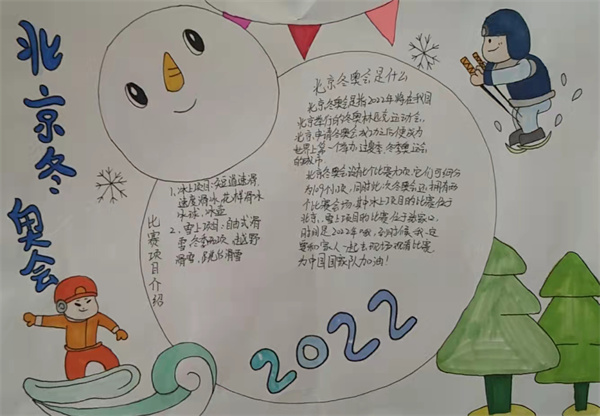 北京冬奥会
北京冬奥会是什么
北京冬奥会是指2022年将在我国
北京举行的冬奥林匹克运动会,
北京申请冬奥会成功之后使成为
世界上第一个举办过夏季、冬季奥运会
的城市。
北京冬奥会设有七个比赛大项,它们可细分
为109个小项,同时此次冬奥会还拥有两
个比赛会场,其中冰上项目的比赛位于
北京,雪上项目的比赛位于
时间是2022年哦,到时候我一定
要和家人一起去现场观看比赛
为中国国家队加油!
比赛项目介绍
1、冰上项目:短道速滑、
速度滑冰、花样滑冰
冰球、冰壶
2、雪上项目:自由式滑
雪、冬季两项、越野
滑雪、跳台滑雪
2022